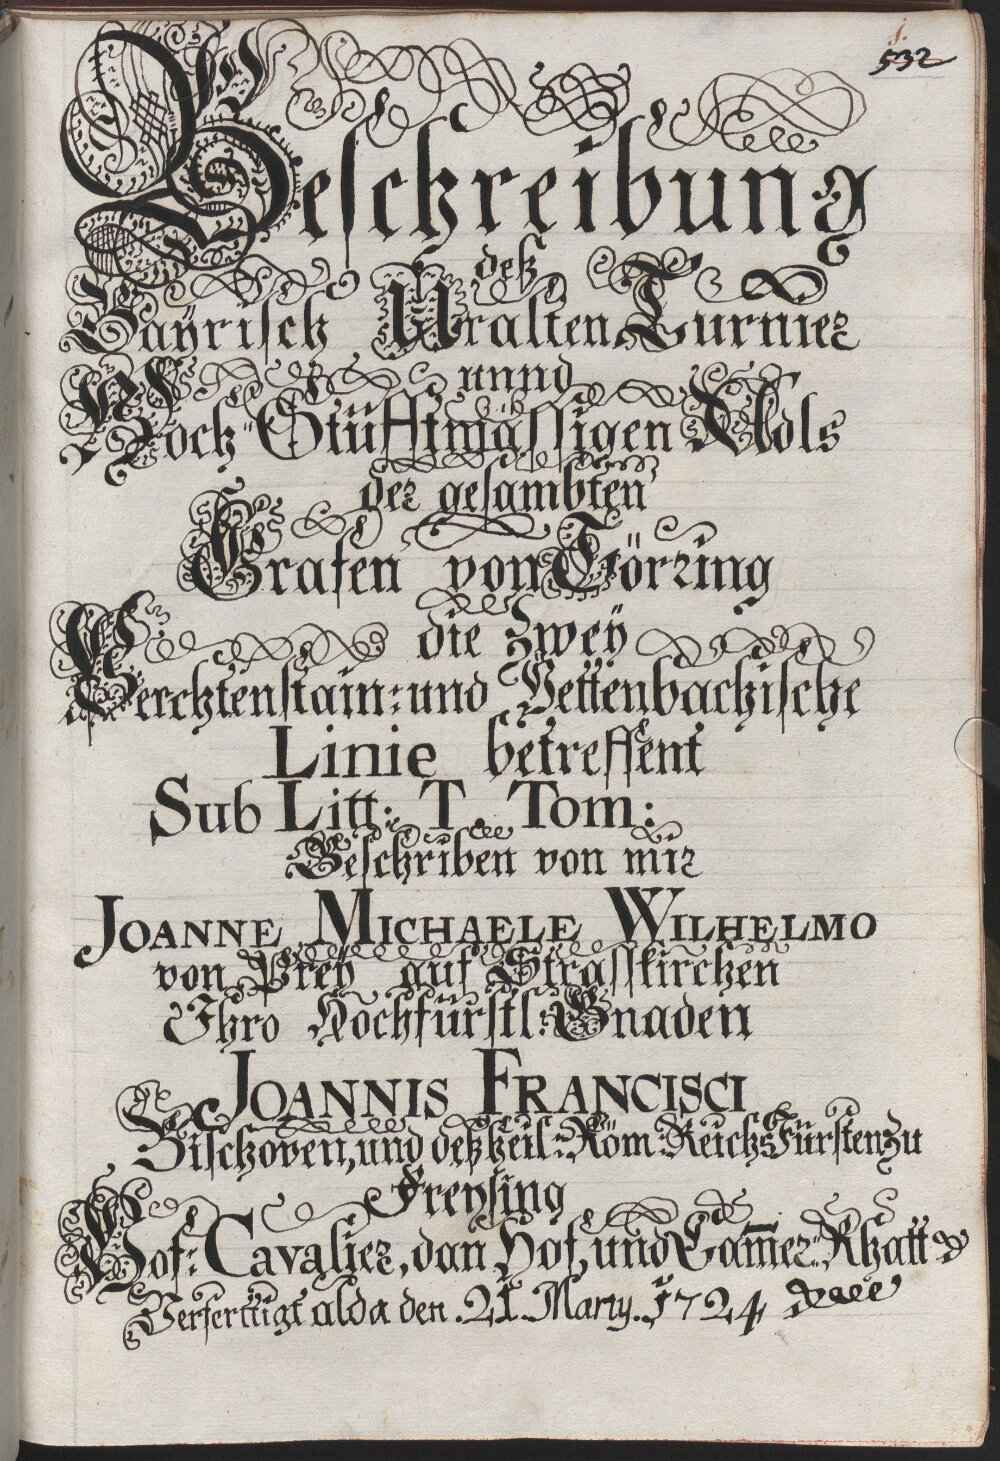 1.
532
Beschreibung
deß
Bayrisch Uralten Turnier
unnd
Hoch Stüfftmässigen Adls
der gesambten
Grafen von Törring
die zwey
Perchtenstain: und Pettenbachische
Linie betreffent
Sub Litt: T. Tom:
Beschriben von mir
JOANNE MICHAELE WILHELMO
von Prey auf Strasskirchen
Ihro Hochfürstl: Gnaden
JOANNIS FRANCISCI
Bischoven, und deß heil: Röm: Reichs Fürsten zu
Freysing
Hof: Cavalier, dan Hof, und Cam̄er Rhatt
Verferttigt alda den .21. Marty. 1724